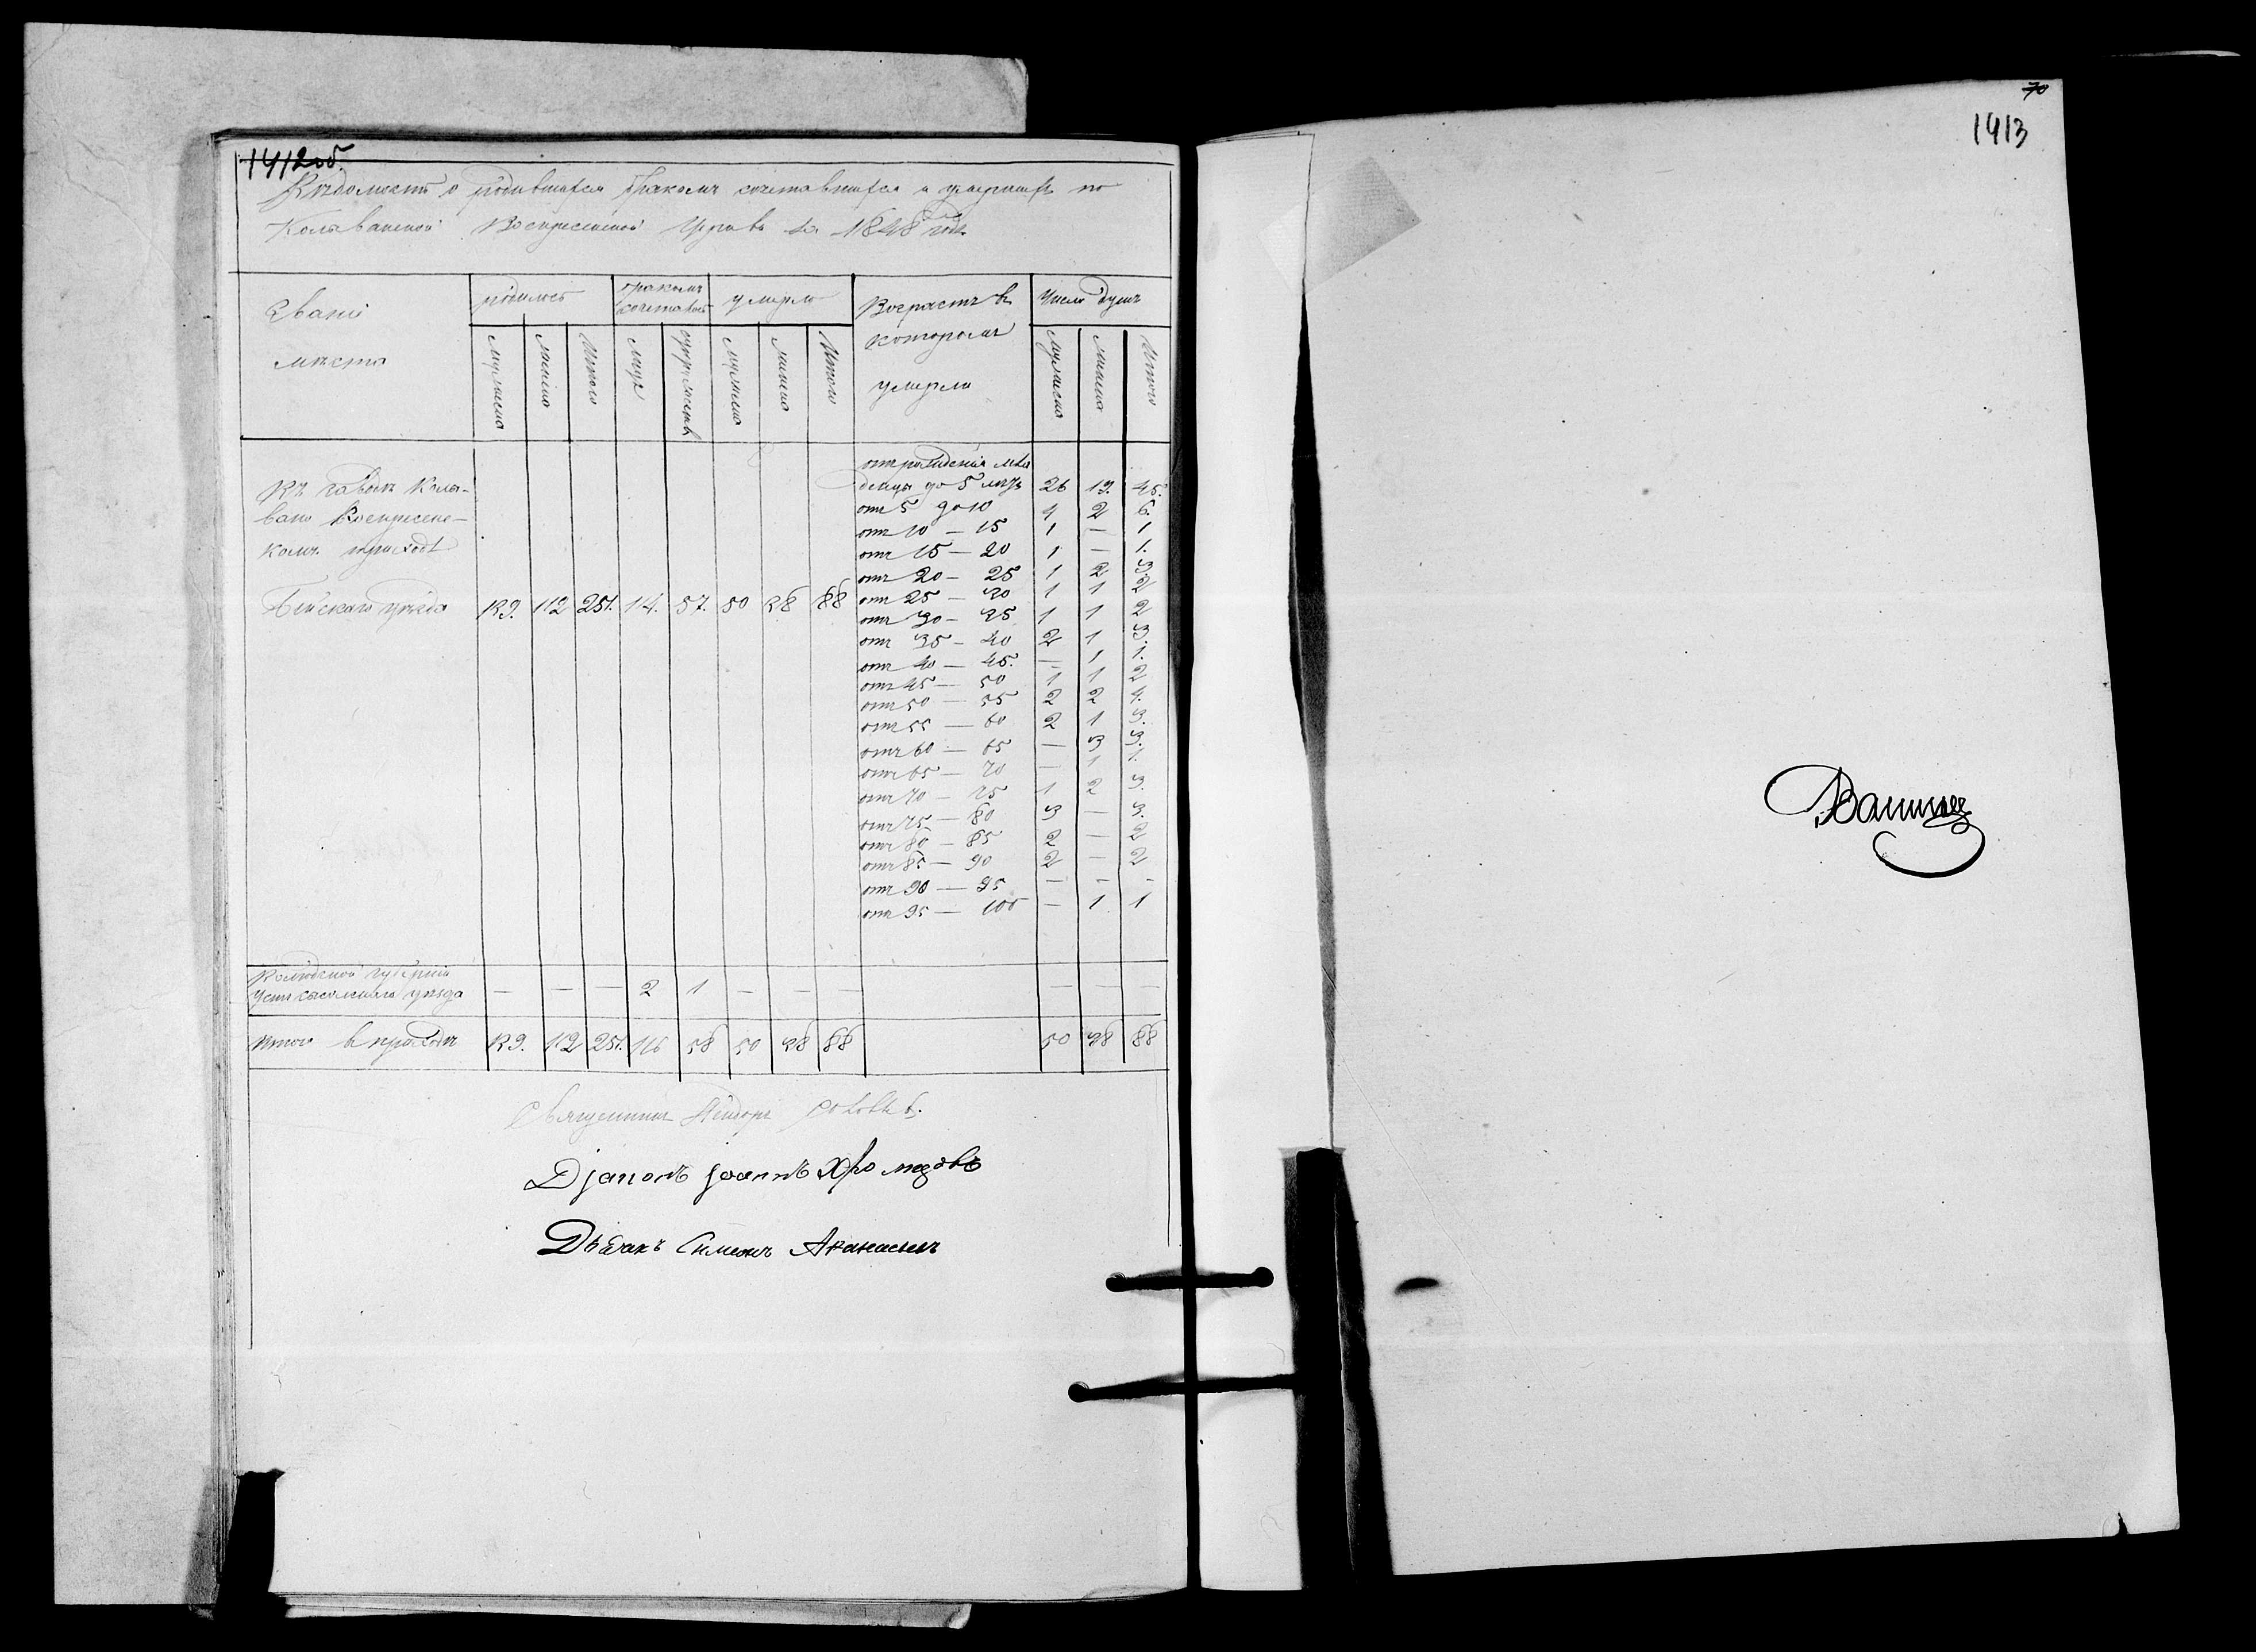 1412 об.
Ведомость о родившихся бракомъ сочетавшихся и умершихъ по
Колыванской Воскресенской Церкви за 1848 годъ.
Званіе мѣста
родилось
бракомъ сочеталось
умерло
Возрастъ въ которомъ умерли
Число душъ
мужеска женска Итого мужс супружествъ мужеска женска Итого мужеска женска Итого
отъ рожденія мла
Въ заводѣ Колы- денцы до 5 лѣтъ 26 19. 45.
вано Воскресенс- отъ 5 до 10 4 2 6.
комъ приходѣ отъ 10 — 15 1 — 1
отъ 15 — 20 1 — 1.
отъ 20 — 25 1 2 3
Бійскаго уѣзда 139. 112 251. 114. 57. 50 38 88 отъ 25 — 30 1 1 2
отъ 30 — 35 1 1 2
отъ 35 — 40 2 1 3.
отъ 40 — 45. — 1 1.
отъ 45 — 50 1 1 2
отъ 50 — 55 2 2 4.
отъ 55 — 60 2 1 3.
отъ 60 — 65 — 3 3.
отъ 65 — 70 — 1 1.
отъ 70 — 75 1 2 3.
отъ 75 — 80 3 — 3.
отъ 80 — 85 2 — 2
отъ 85 — 90 2 — 2
отъ 90 — 95 — — —
отъ 95 — 100 — 1 1
губерніи
уѣзда — — — 2 1 — — — — — —
Итого въ приходѣ 139. 112 251. 116 58 50 38 88 50 38 88
Священникъ
Діаконъ Іоаннъ Хромцовъ
Дьячекъ Симеонъ
70
1413